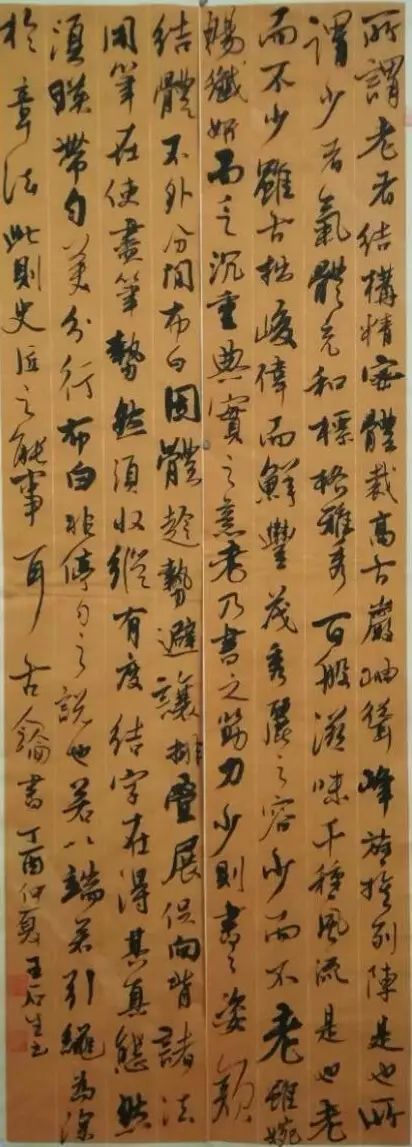 所謂老者結構精密體裁高古巖岫聳峰旌旗列陣是也所
謂少者氣體充和標格雅秀百般滋味千種風流是也老
而不少雖古拙峻偉而鮮豐茂秀麗之容少而不老雖婉
暢纖妍而乏沉重典實之意老乃書之筋力少則書之姿顏
結體不外分間布白因體趁勢避讓排疊展促向背諸法
用筆在使盡筆勢然須收縱有度結字在得其真態然
須映帶勻美分行布白非停勻之說也若以端若引繩為深
於章法此則史匠之能事耳 古人論書 丁酉仲夏 王石生书